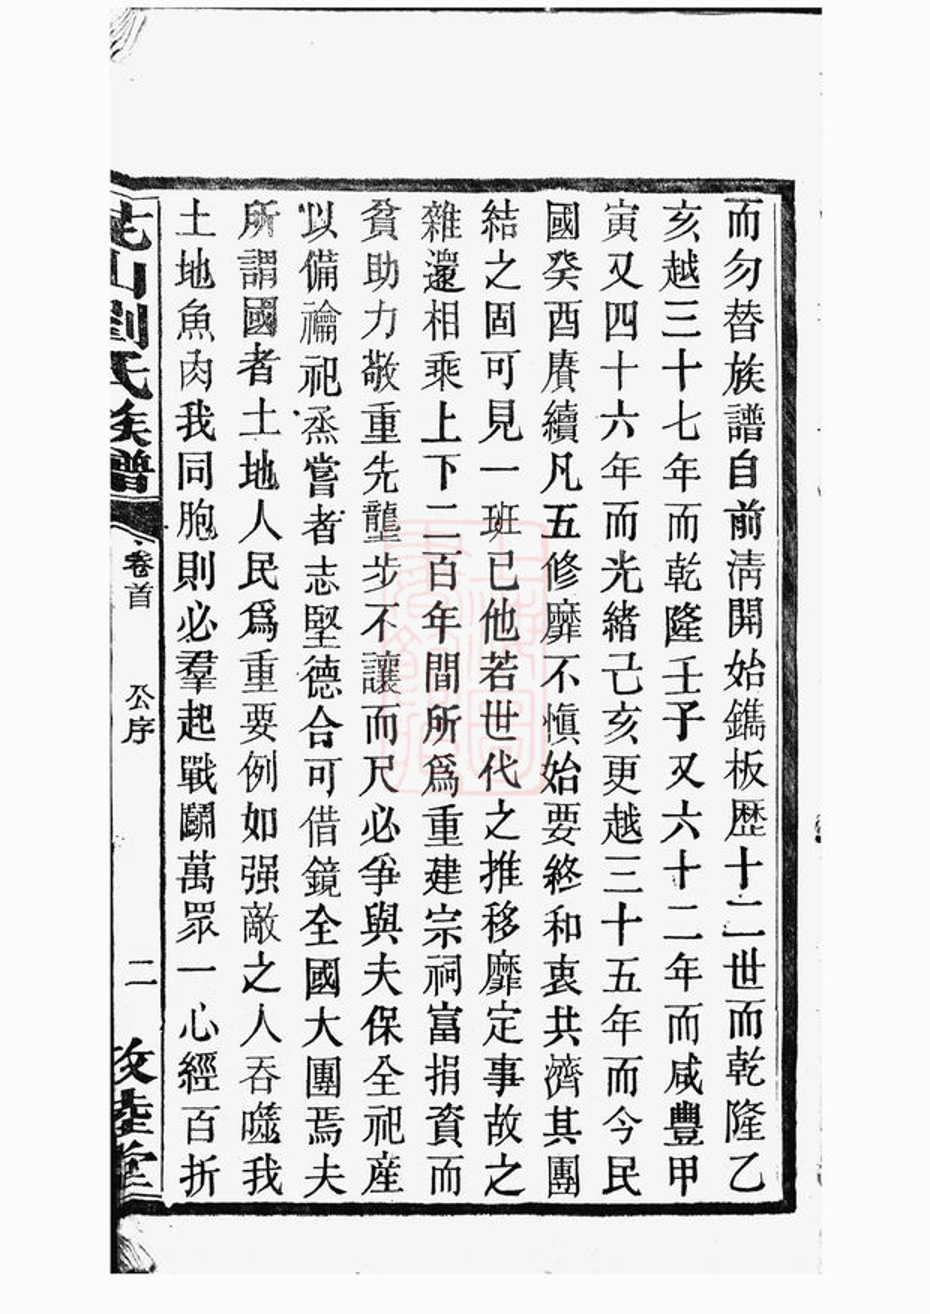 而勿替族譜自前淸開始鐫板歷十二世而乾隆乙
亥越三十七年而乾隆壬子又六十二年而咸豐甲
寅又四十六年而光緒己亥更越三十五年而今民
國癸酉賡續凡五修靡不愼始要終和衷共濟其團
結之固可見一班已他若世代之推移靡定事故之
雜還相乘上下二百年間所爲重建宗祠富捐資而
貧助力敬重先龍步不讓而尺必爭與夫保全祀產
以備禴祀烝嘗者志堅德合可借鏡全國大團焉夫
所謂國者土地人民爲重要例如强敵之人吞噬我
土地魚肉我同胞則必羣起戰鬭萬眾一心經百折
山劉氏族譜
卷首
公序
二
堂